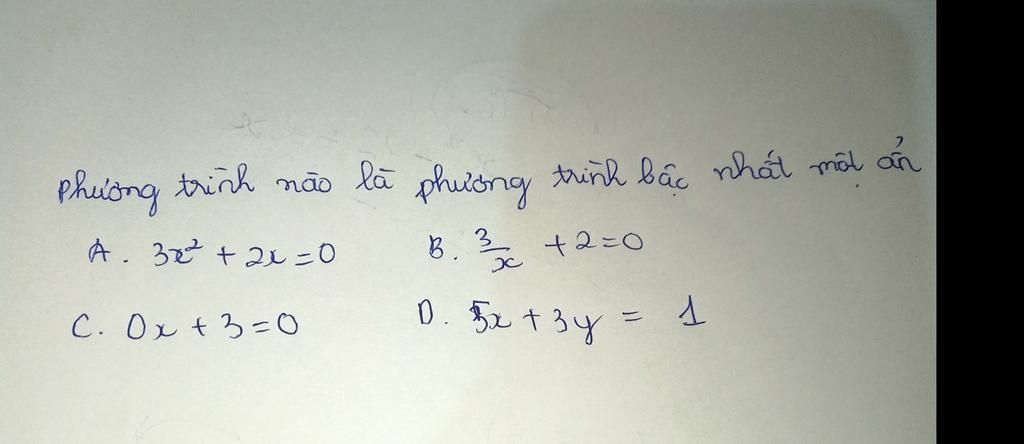 phương trình nào là phương trình bậc nhất một ẩn
A. 3x² + 2x = 0 B. 3/x + 2 = 0
C. 0x + 3 = 0 D. 5x + 3y = 1